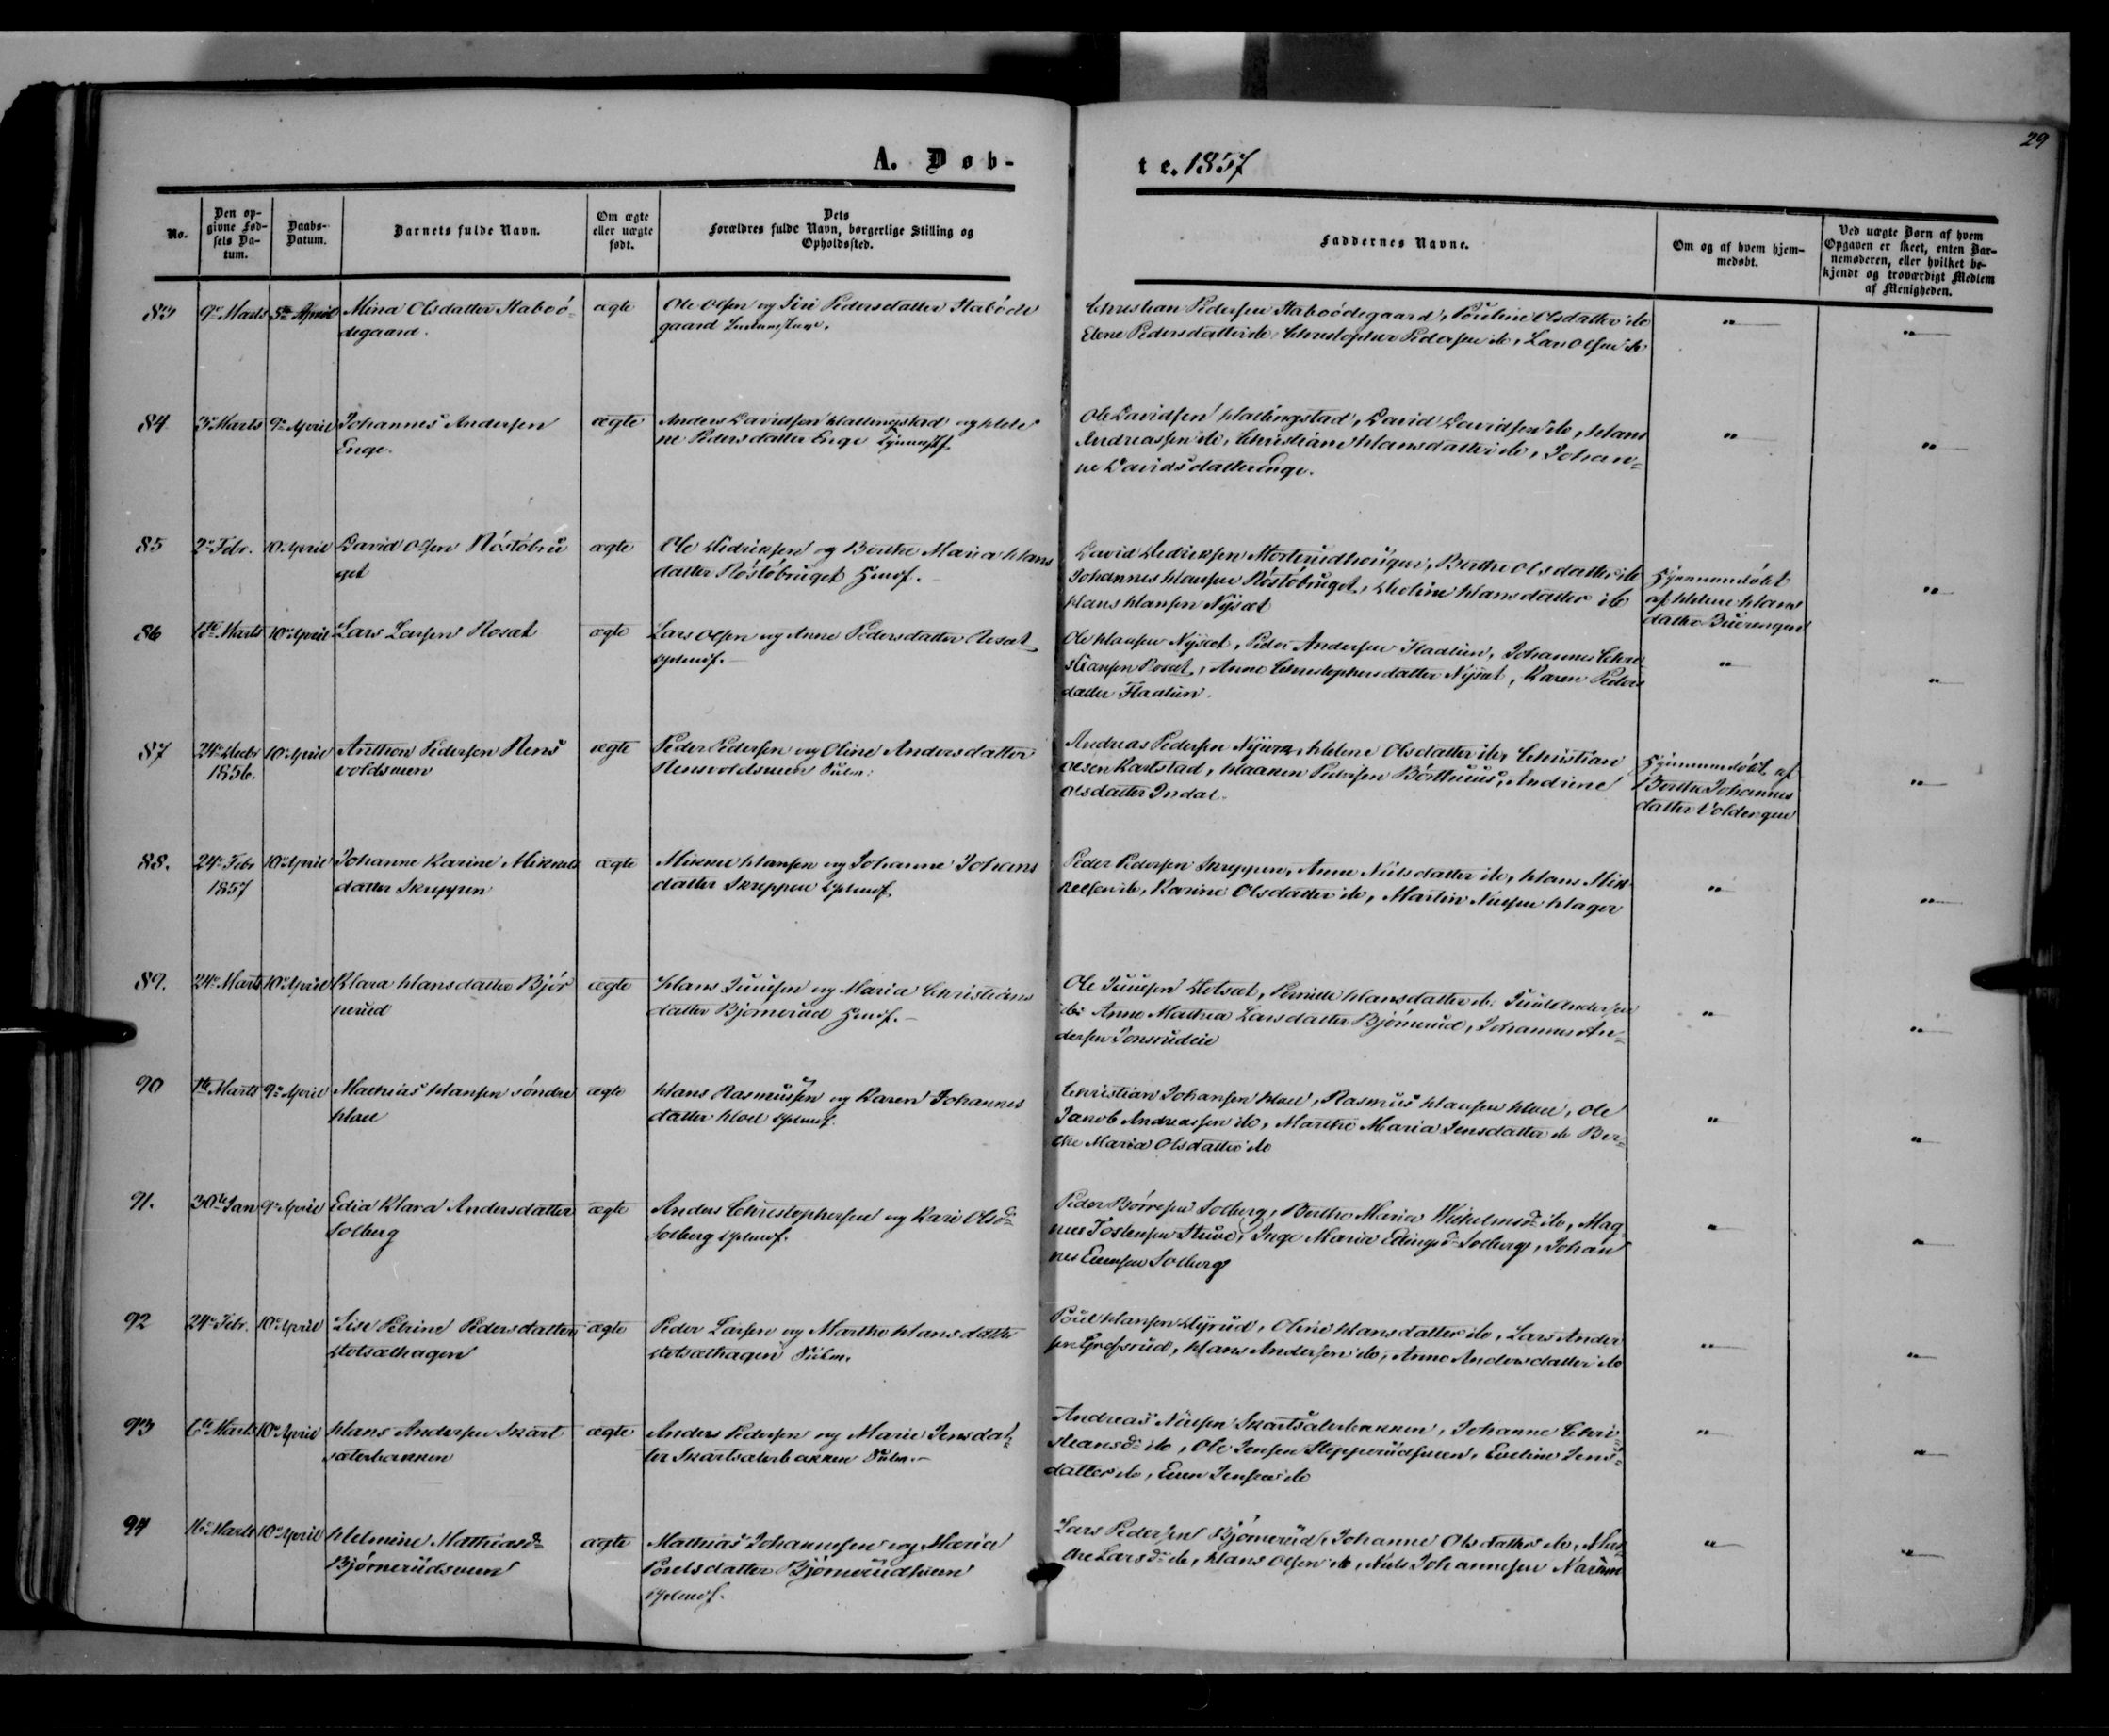 29
A. Døb-
te. 1857
No.
Den op-
givne Fød-
sels Da-
tum.
Daabs-
Datum.
Barnets fulde Navn.
Om ægte
eller uægte
født.
Dets
Forældres fulde Navn, borgerlige Stilling og
Opholdssted.
Faddernes Navne.
Om og af hvem hjem-
medøbt.
Ved uægte Børn af hvem
Opgaven er skeet, enten Bar-
nemoderen, eller hvilket be-
kjendt og troværdigt Medlem
af Menigheden.
83 9de Marts 5te April Mina Olsdatter Staboø-
degaard.
ægte
Ole Olsen og Siri Pedersdatter Stabøde
gaard
Christian Pedersen Staboödegaard, Pouline Olsdatter do
Elene Pedersdatter do, Christopher Pedersen do, Lars Olsen do
84 3de Marts 9de April Johannes Andersen
Enge.
ægte
Anders Davidsen Hallingstad og Hele
ne Pedersdatter Enge
Ole Davidsen Hallingstad, David Davidsen do, Hans
Andreassen do, Christiane Hansdatter do, Johan-
ne Davidsdatter Enge.
85 2de Febr. 10de April David Olsen Röstöbru
get
ægte
Ole Didriksen og Berthe Maria Hans
datter Röstöbruget
David Didriksen Morterudhougen, Berthe Olsdatter do
Johannes Hansen Röstöbruget, Helene Hansdatter do
Hans Hansen Nysæt
Hjemmedöbt
af Helene Hans
datter
86 18de Marts 10de April Lars Larsen Rosæt
ægte
Lars Olsen og Anne Pedersdatter Rosæt
Ole Hansen Nysæt, Peder Andersen Fladlien, Johannes Chri
stiansen Rosæt, Anne Christophersdatter Nysæt, Karen Peders
datter Fladlien.
87 24de Decbr 10de April Anthon Pedersen Rens
1856. voldseien
ægte
Peder Pedersen og Oline Andersdatter
Rensvoldseien
Andreas Pedersen, Helene Olsdatter do, Christian
Olsen Karlstad, Haagen Pedersen, Andrine
Olsdatter Indal.
Hjemmedöbt af
Berthe Johannes
datter Voldengen
88. 24de Febr 10de April Johanne Karine Mikkels
1857 datter Skreppen
ægte
Mikkel Hansen og Johanne Johans
datter Skreppen
Peder Pedersen Skreppen, Anne Nielsdatter do, Hans Mik-
kelsen do, Karine Olsdatter do, Martin Nielsen Hager
89. 24de Marts 10de April Klara Hansdatter Björ
nerud
ægte
Hans Juulsen og Maria Christians
datter Bjørnerud
Ole Juulsen Hotsæt, Pernille Hansdatter do, Juul Andersen
do, Anne Mathea Larsdatter Bjørnerud, Johannes An-
dersen Jonsrudeie
90 1te Marts 9de April Mathias Hansen söndre
Hoel
ægte
Hans Rasmussen og Karen Johannes
datter Hoel
Christian Johansen Hoel, Rasmus Hansen Hoel, Ole
Jacob Andreassen do, Marthe Maria Jensdatter do, Ber-
the Maria Olsdatter do
91. 30te Jan 9de April Edia Klara Andersdatter
Solberg
ægte
Anders Christophersen og Kari Olsdr
Solberg
Peder Børresen Solberg, Berthe Maria Wilhelmsdr do, Mag-
nus Tostensen, Inge Maria Ellingsdr Solberg, Johan
nes Evensen Solberg
92 24de Febr. 10de April Lise Petrine Pedersdatter
Hotsæthagen
ægte
Peder Larsen og Marthe Hansdatter
Hotsæthagen
Poul Hansen, Oline Hansdatter do, Lars Ander
sen, Hans Andersen do, Anne Andersdatter do
93 6te Marts 10de April Hans Andersen Skart
sæterbakken
ægte
Anders Pedersen og Marie Jensdat-
ter Skartsæterbakken
Andreas Nielsen Skartsæterbakken, Johanne Chri-
stiansdr do, Ole Jensen Stepperudseien, Eveline Jens-
datter do, Even Jensen do
94 16de Marts 10de April Helmine Mathiasdr
Bjørnerudseien
ægte
Mathias Johannesen og Maria
Poulsdatter Bjørnerudseien
Lars Pedersen Bjørnerud, Johanne Olsdatter do, Mar-
the Larsdr do, Hans Olsen do, Niels Johannesen Narum